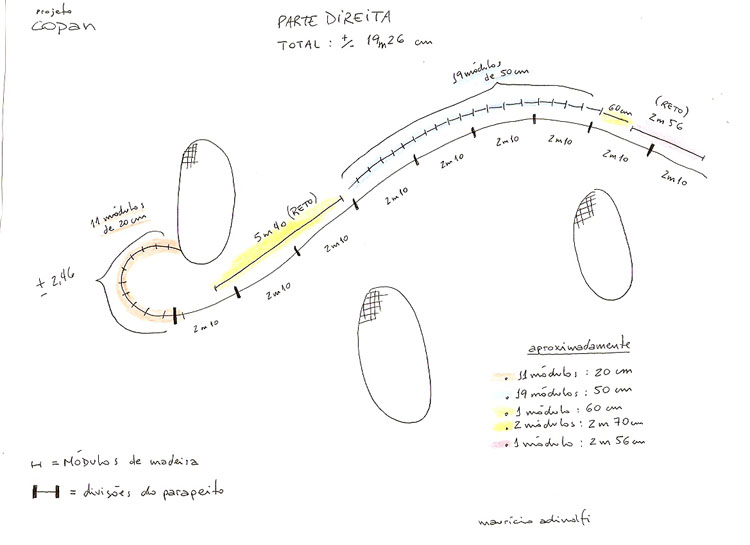 projeto
copan
PARTE DIREITA
TOTAL : +/- 19m26 cm
19 módulos
de 50cm
60cm
(RETO)
2m56
11 módulos
de 20cm
± 2,46
5m40 (RETO)
2m10
2m10
2m10
2m10
2m10
2m10
2m10
2m10
2m10
aproximadamente
. 11 módulos : 20 cm
. 19 módulos : 50 cm
. 1 módulo : 60 cm
. 2 módulos : 2m 70cm
. 1 módulo : 2m 56cm
= MÓDULOS de madeira
= divisões do parapeito
maurício adinolfi